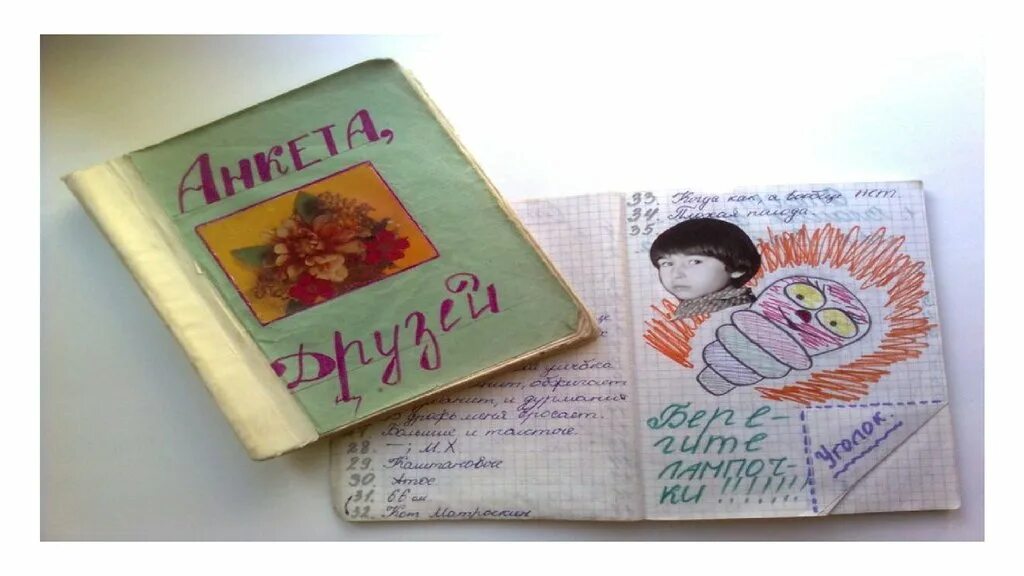 Анкета,
Друзей
улыбка
обжигает
и дурманит
бросает.
Большие и толстые.
28. —; М.Х.
29. Каштановые
30. Атос
31. 66 см
32. Кот Матроскин
33. Когда как, а вообще нет.
34. Плохая погода.
35.
Бере-
гите
лампоч-
ки !!!!!!!
Уголок.